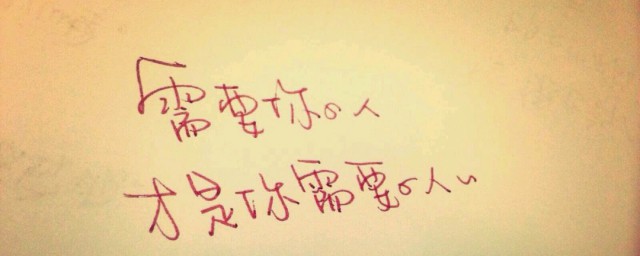 「需要你の人
才是你需要の人」